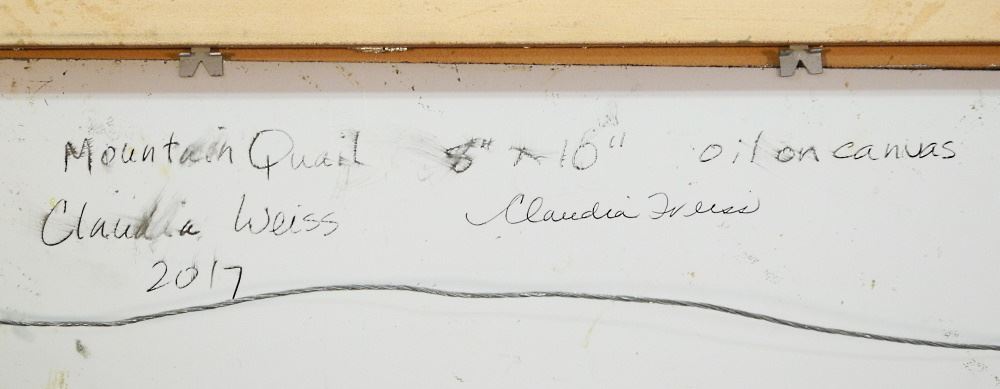 Mountain Quail 8" x 10" oil on canvas
Claudia Weiss Claudia Weiss
2017